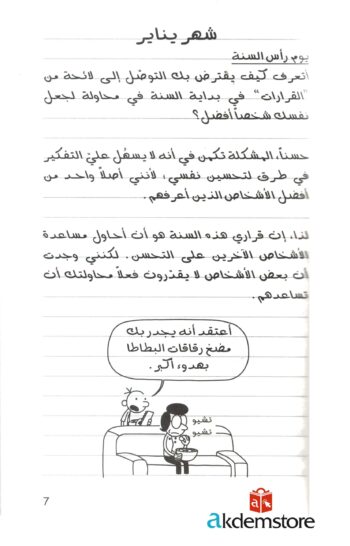 شهر يناير
يوم رأس السنة
أتعرف كيف يفترض بك التوصّل إلى لائحة من
"القرارات" في بداية السنة في محاولة لجعل
نفسك شخصاً أفضل؟
حسناً، المشكلة تكمن في أنه لا يسهُل عليّ التفكير
في طرق لتحسين نفسي، لأنني أصلاً واحد من
أفضل الأشخاص الذين أعرفهم.
لذا، إن قراري هذه السنة هو أن أحاول مساعدة
الأشخاص الآخرين على التحسن. لكنني وجدت
أن بعض الأشخاص لا يقدّرون فعلاً محاولتك أن
تساعدهم.
أعتقد أنه يجدر بك
مضغ رقاقات البطاطا
بهدوء أكبر.
تشيو
تشيو
7
akdemstore